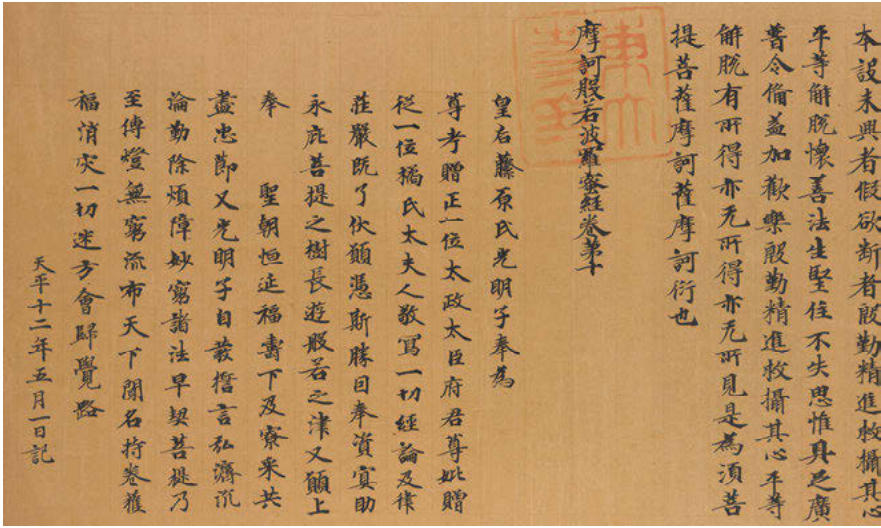 本設未興者假欲斷者殷勤精進牧攝其心
平等解脫懷善法生堅住不失思惟具足廣
普令備益加歡樂殷勤精進牧攝其心平等
解脫有所得亦无所得亦无所見是為須菩
提菩薩摩訶薩摩訶衍也
摩訶般若波羅蜜經卷第十
皇后藤原氏光明子奉為
尊考贈正一位太政太臣府君尊妣贈
從一位橘氏太夫人敬寫一切經論及律
莊嚴既了伏願憑斯勝因奉資冥助
永庇菩提之樹長遊般若之津又願上
奉 聖朝恒延福壽下及寮采共
盡忠節又光明子自發誓言弘濟沉
淪勤除煩障妙窮諸法早契菩提乃
至傳燈無窮流布天下聞名持卷獲
福消灾一切迷方會歸覺路
天平十二年五月一日記